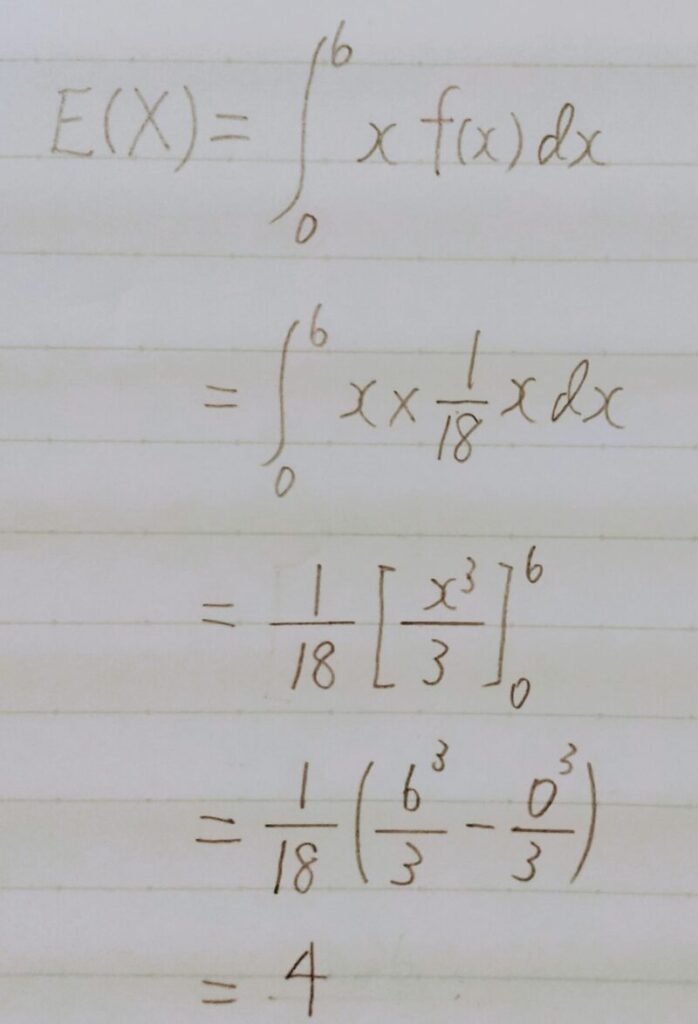 E(X) = ∫₀⁶ x f(x) dx
= ∫₀⁶ x × 1/18 x dx
= 1/18 [x³/3]₀⁶
= 1/18 (6³/3 − 0³/3)
= 4